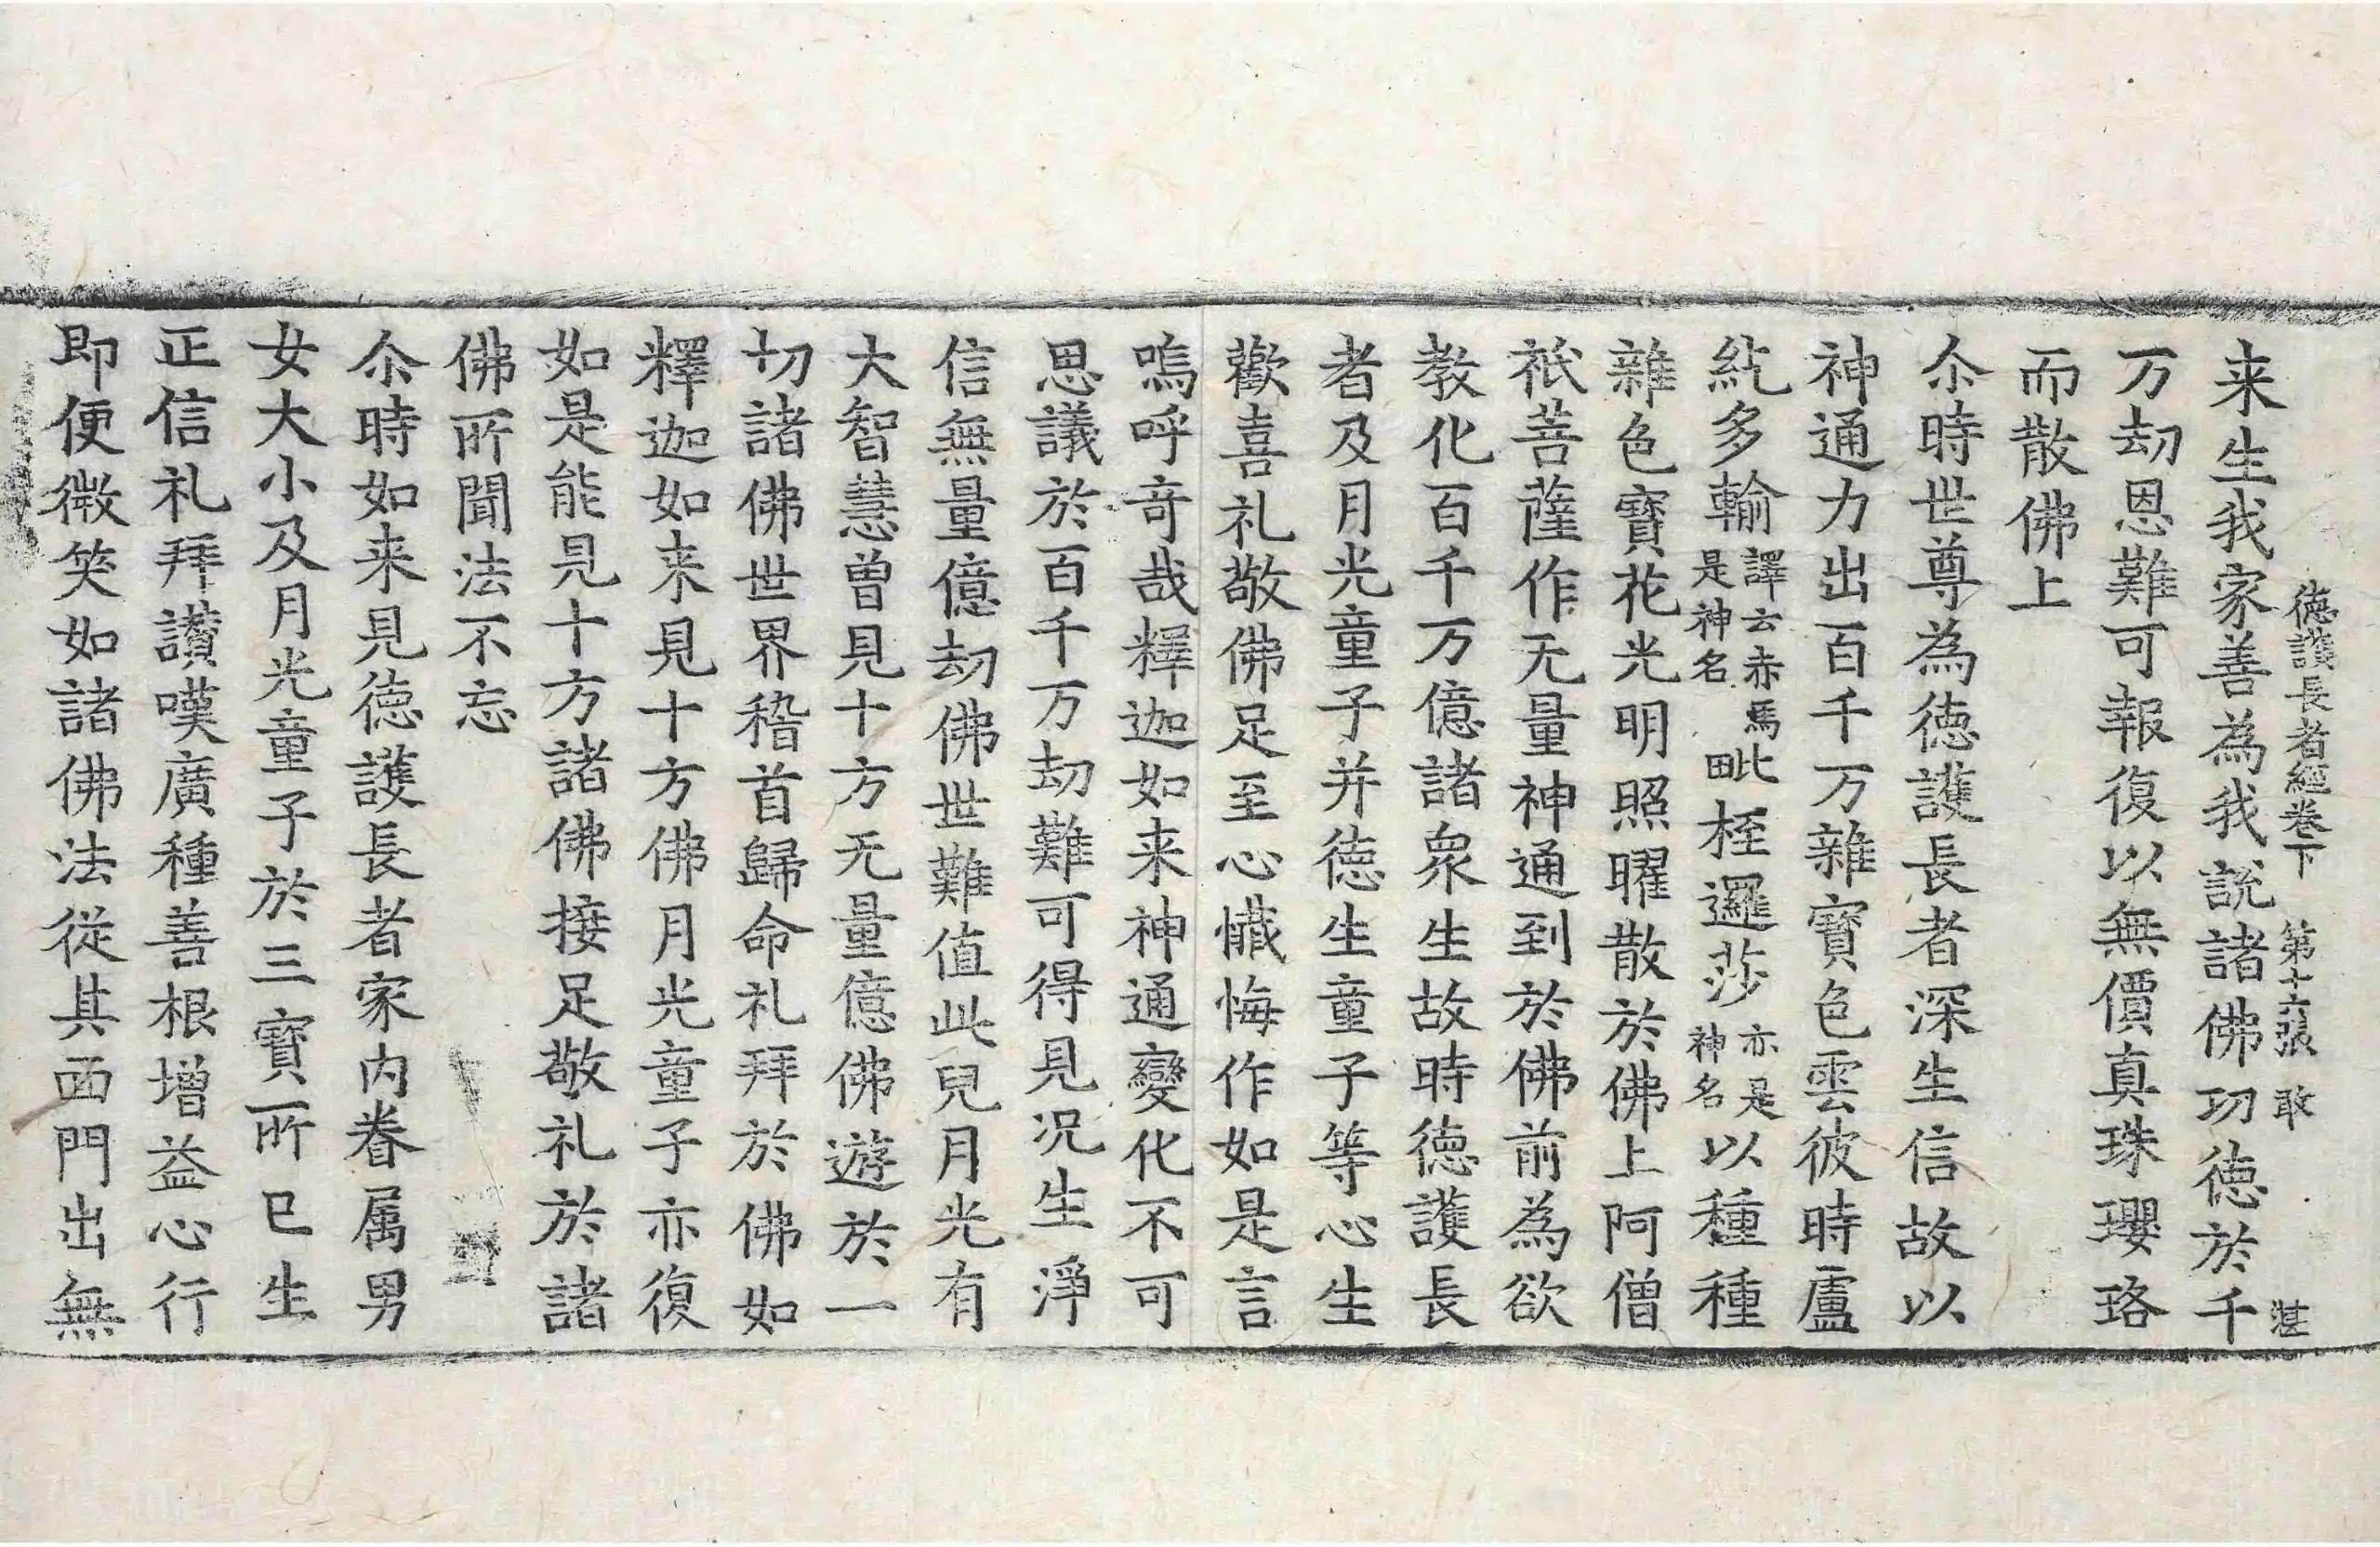 德護長者經卷下 第十六張 敢 湛
来生我家善為我說諸佛功德於千
万劫恩難可報復以無價真珠瓔珞
而散佛上
尒時世尊為德護長者深生信故以
神通力出百千万雜寶色雲彼時盧
紇多輸譯云赤馬是神名毗桎邏莎亦是神名以種種
雜色寶花光明照曜散於佛上阿僧
祇菩薩作无量神通到於佛前為欲
教化百千万億諸衆生故時德護長
者及月光童子并德生童子等心生
歡喜礼敬佛足至心懺悔作如是言
嗚呼奇哉釋迦如来神通變化不可
思議於百千万劫難可得見况生淨
信無量億劫佛世難值此兒月光有
大智慧曽見十方无量億佛遊於一
切諸佛世界稽首歸命礼拜於佛如
釋迦如来見十方佛月光童子亦復
如是能見十方諸佛接足敬礼於諸
佛所聞法不忘
尒時如来見德護長者家内眷属男
女大小及月光童子於三寳所已生
正信礼拜讃嘆廣種善根增益心行
即便微笑如諸佛法從其面門出無